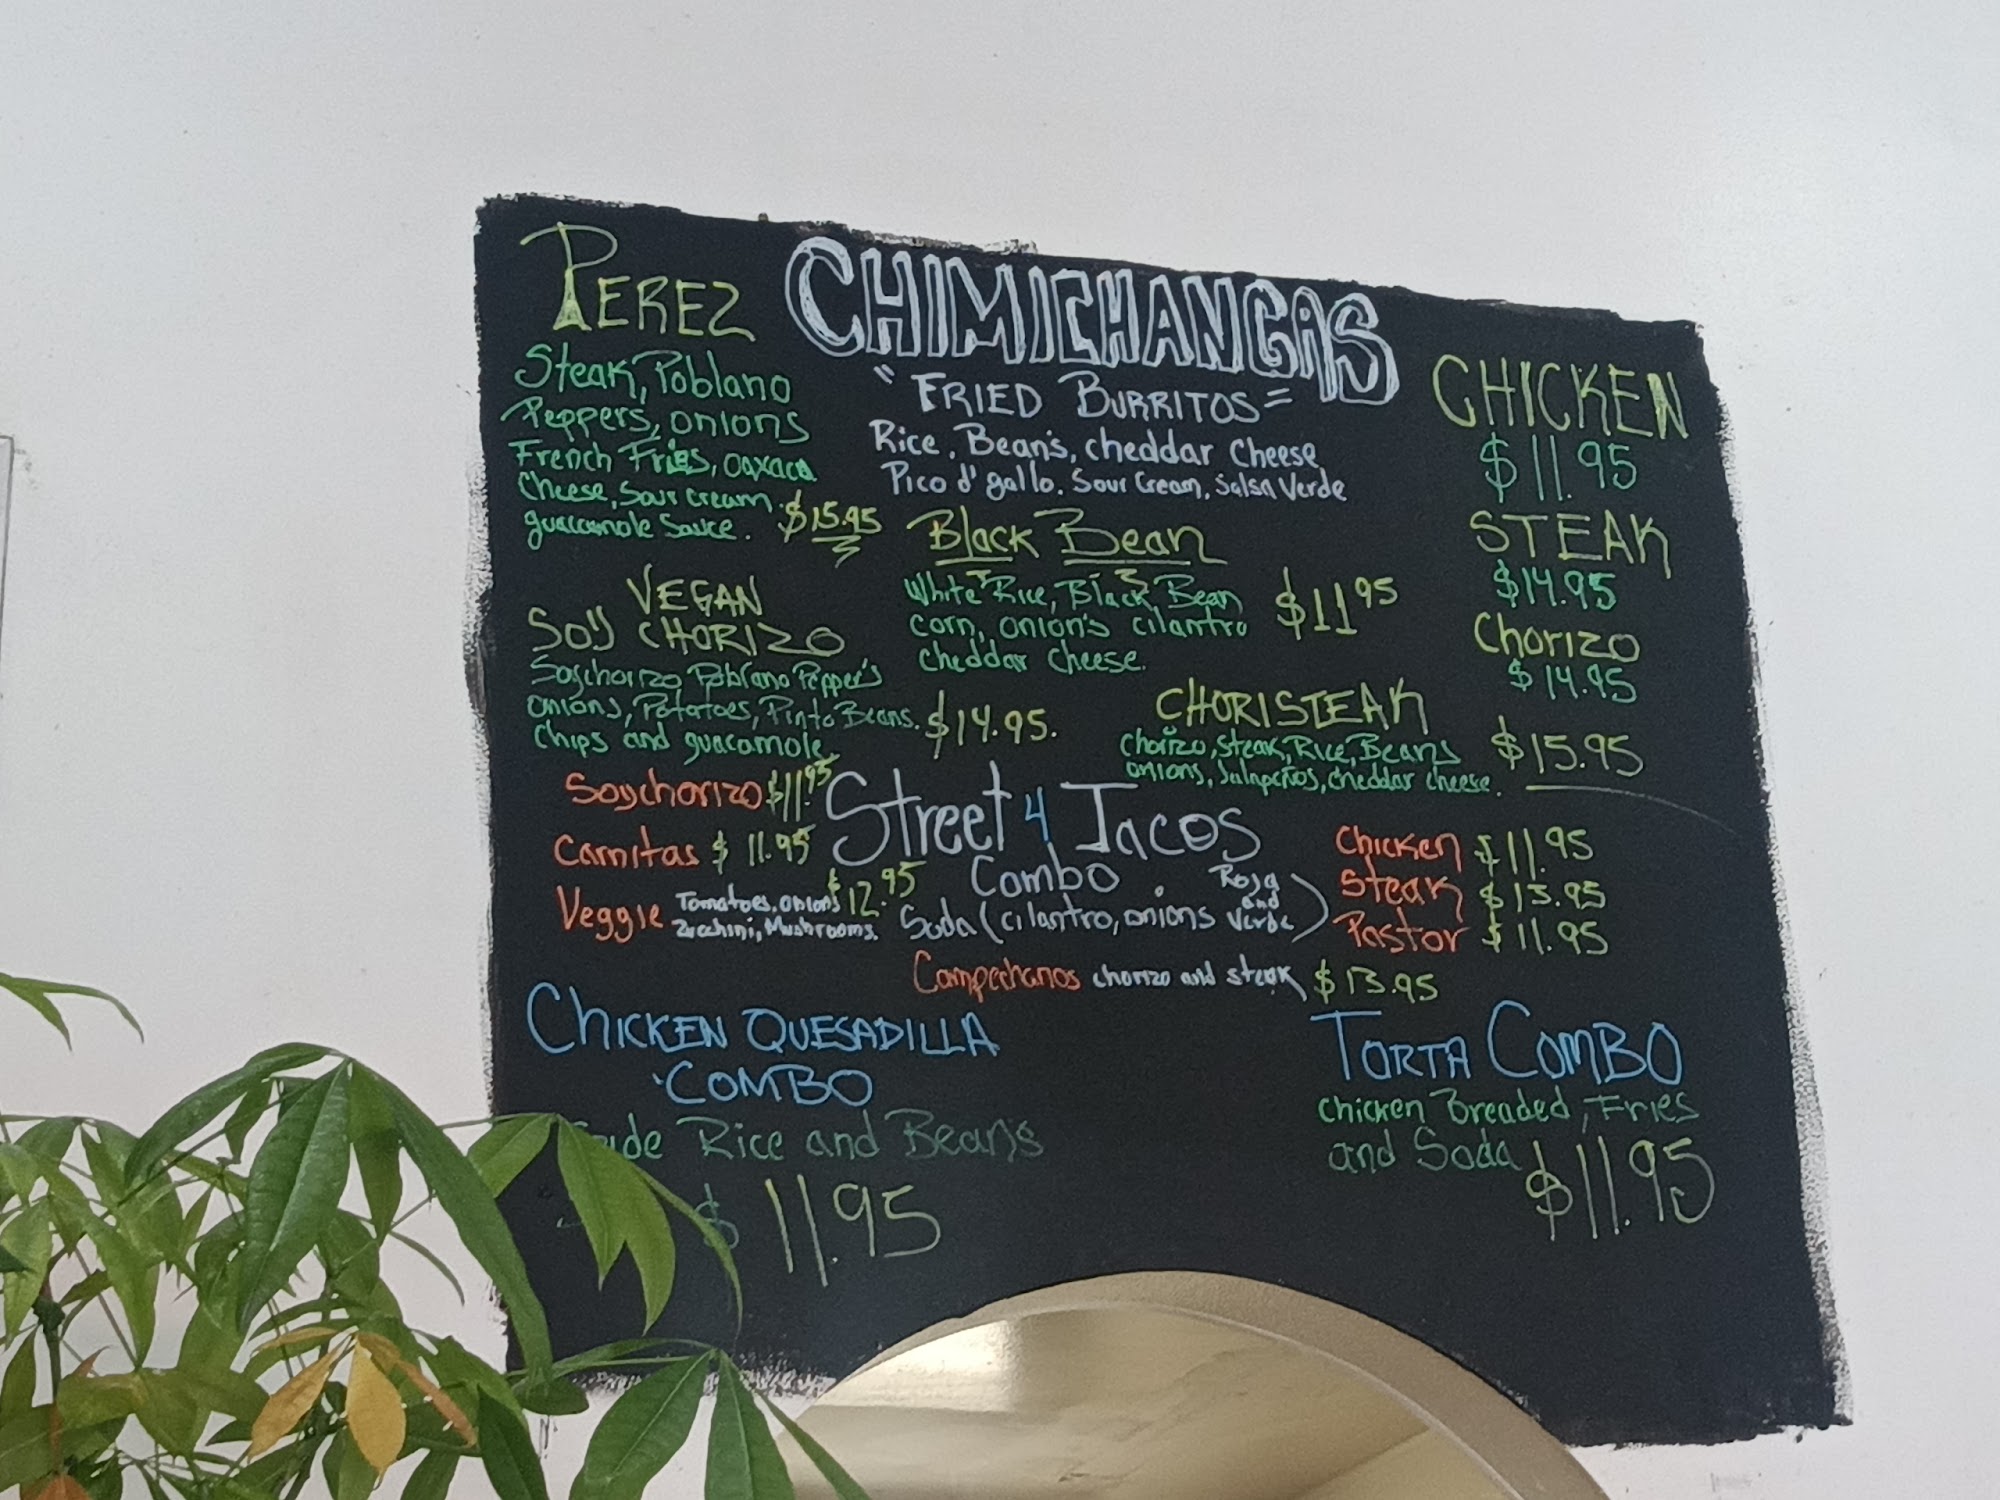 PEREZ
Steak, Poblano
Peppers, onions
French Fries, oaxaca
Cheese, Sour cream
guacamole Sauce. $15.95
CHIMICHANGAS
"FRIED BURRITOS"
Rice, Bean's, cheddar Cheese
Pico d' gallo. Sour Cream, Salsa Verde
CHICKEN
$11.95
STEAK
$14.95
Chorizo
$14.95
Black Bean
White Rice, Black Bean
corn, onion's cilantro
cheddar cheese.
$11 95
VEGAN
SOY CHORIZO
Soychorizo Poblano Pepper's
onions, Potatoes, Pinto Beans.
Chips and guacamole
$14.95.
CHORISTEAK
Chorizo, Steak, Rice, Beans
onions, Jalapeños, cheddar cheese.
$15.95
Soychorizo $11.95
Carnitas $11.95
Veggie Tomatoes, onions
Zucchini, Mushrooms. $12.95
Street 4 Tacos
Combo
Soda (cilantro, onions Roja and Verde)
Chicken $11.95
Steak $13.95
Pastor $11.95
Campechanos chorizo and steak $13.95
CHICKEN QUESADILLA
COMBO
Rice and Bean's
$11.95
TORTA COMBO
Chicken Breaded, Fries
and Soda
$11.95